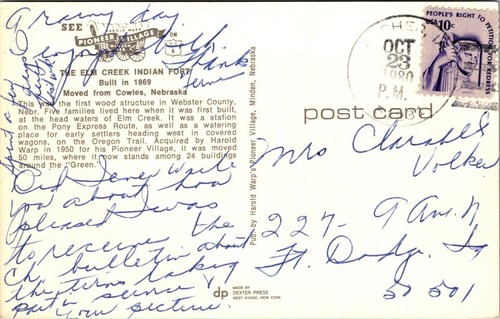 A rainy day.
SEE
HAROLD WARP
PIONEER VILLAGE
ON
THE ELM CREEK INDIAN FORT
Built in 1869
Moved from Cowles, Nebraska
This was the first wood structure in Webster County,
Nebr. Five families lived here when it was first built,
at the head waters of Elm Creek. It was a station
on the Pony Express Route, as well as a watering
place for early settlers heading west in covered
wagons, on the Oregon Trail. Acquired by Harold
Warp in 1950 for his Pioneer Village, it was moved
50 miles, where it now stands among 24 buildings
around the "Green."
Did I ever write
you about how
pleased I was
to receive the
Ch. bulletin about
the twins taking
part in service &
your picture.
Pub. by Harold Warp's Pioneer Village, Minden, Nebraska
dp
MADE BY
DEXTER PRESS
WEST NYACK, NEW YORK
OCT
23
1980
P.M.
PEOPLE'S RIGHT TO PETITION FOR REDRESS
USA 10c
post card
Mrs Clarabel
Volker
227 - 9 Ave. N
Ft. Dodge, Ia
50501